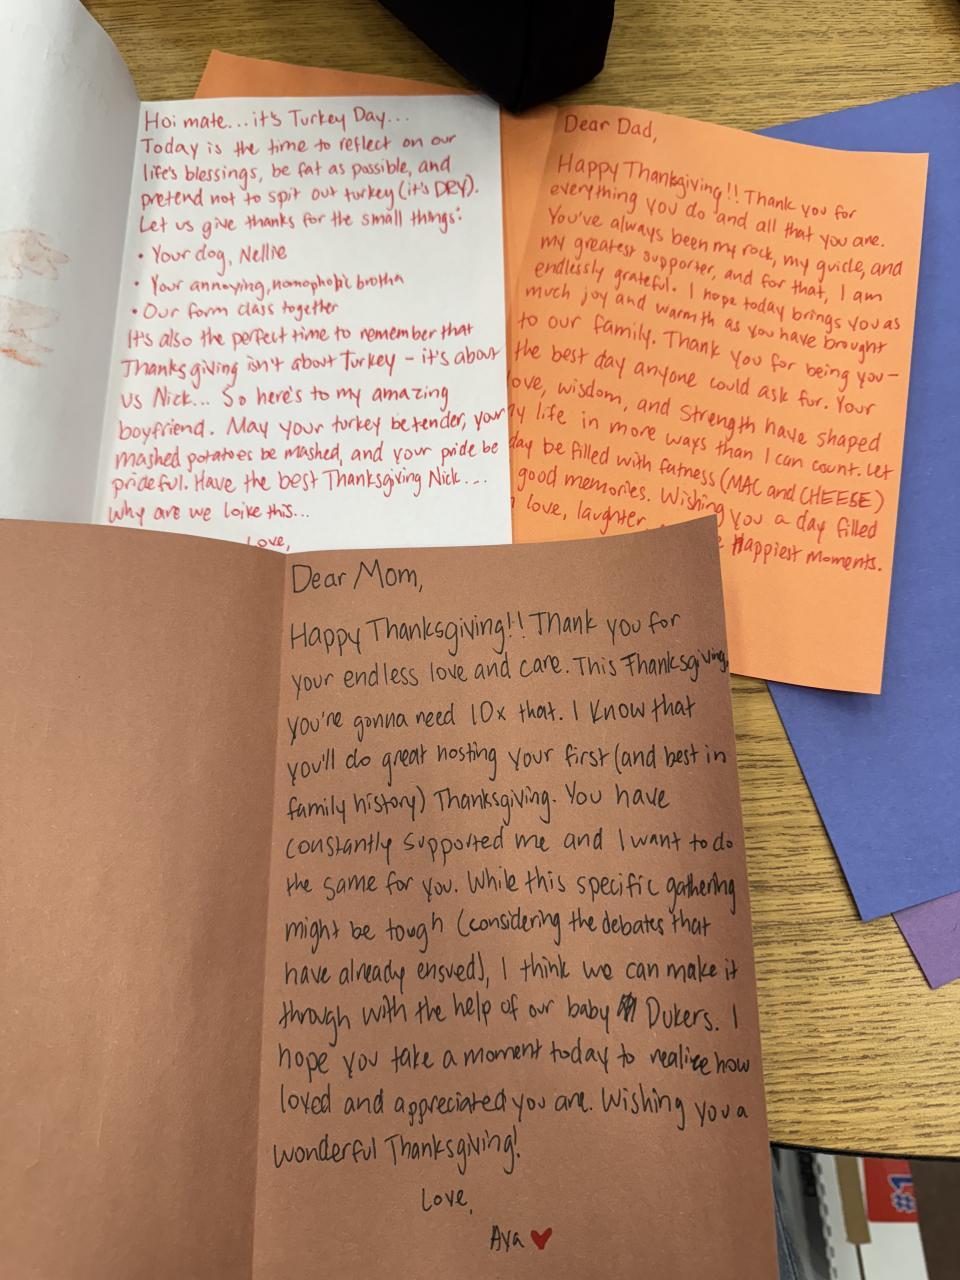 Hoi mate...it's Turkey Day...
Today is the time to reflect on our
life's blessings, be fat as possible, and
pretend not to spit out turkey (it's DRY).
Let us give thanks for the small things:
• Your dog, Nellie
• Your annoying, homophobic brotha
• Our form class together
It's also the perfect time to remember that
Thanksgiving isn't about Turkey - it's about
us Nick... So here's to my amazing
boyfriend. May your turkey be tender, your
mashed potatoes be mashed, and your pride be
prideful. Have the best Thanksgiving Nick...
why are we loike this...
Love,
Dear Dad,
Happy Thanksgiving!! Thank you for
everything you do and all that you are.
You've always been my rock, my guide, and
my greatest supporter, and for that, I am
endlessly grateful. I hope today brings you as
much joy and warmth as you have brought
to our family. Thank you for being you-
the best day anyone could ask for. Your
love, wisdom, and strength have shaped
life in more ways than I can count. Let
day be filled with fatness (MAC and CHEESE)
good memories. Wishing you a day filled
love, laughter Happiest Moments.
Dear Mom,
Happy Thanksgiving!! Thank you for
your endless love and care. This Thanksgiving,
you're gonna need 10x that. I know that
you'll do great hosting your first (and best in
family history) Thanksgiving. You have
constantly supported me and I want to do
the same for you. While this specific gathering
might be tough (considering the debates that
have already ensued), I think we can make it
through with the help of our baby Dukers. I
hope you take a moment today to realize how
loved and appreciated you are. Wishing you a
wonderful Thanksgiving!
Love,
Aya ♥
#1